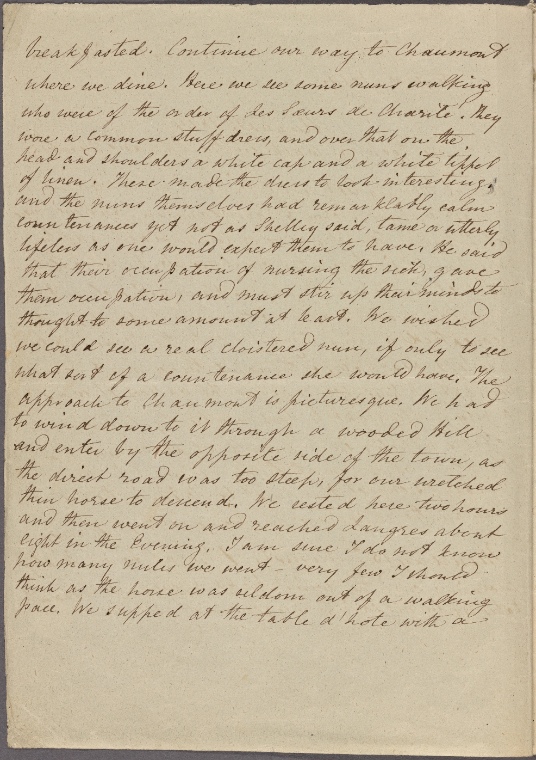 breakfasted. Continue our way to Chaumont
where we dine. Here we see some nuns walking
who were of the order of des Sœurs de Charité. They
wore a common stuff dress, and over that on the
head and shoulders a white cap and a white tippet
of linen. These made the dress to look interesting,
and the nuns themselves had remarkably calm
countenances yet not as Shelley said, tame or utterly
lifeless as one would expect them to have. He said
that their occupation of nursing the sick, gave
them occupation, and must stir up their minds to
thought to some amount at least. We wished
we could see a real cloistered nun, if only to see
what sort of a countenance she would have. The
approach to Chaumont is picturesque. We had
to wind down to it through a wooded Hill
and enter by the opposite side of the town, as
the direct road was too steep, for our wretched
thin horse to descend. We rested here two hours
and then went on and reached Langres about
eight in the Evening. I am sure I do not know
how many miles we went – very few I should
think as the horse was seldom out of a walking
pace. We supped at the table d'hote with a